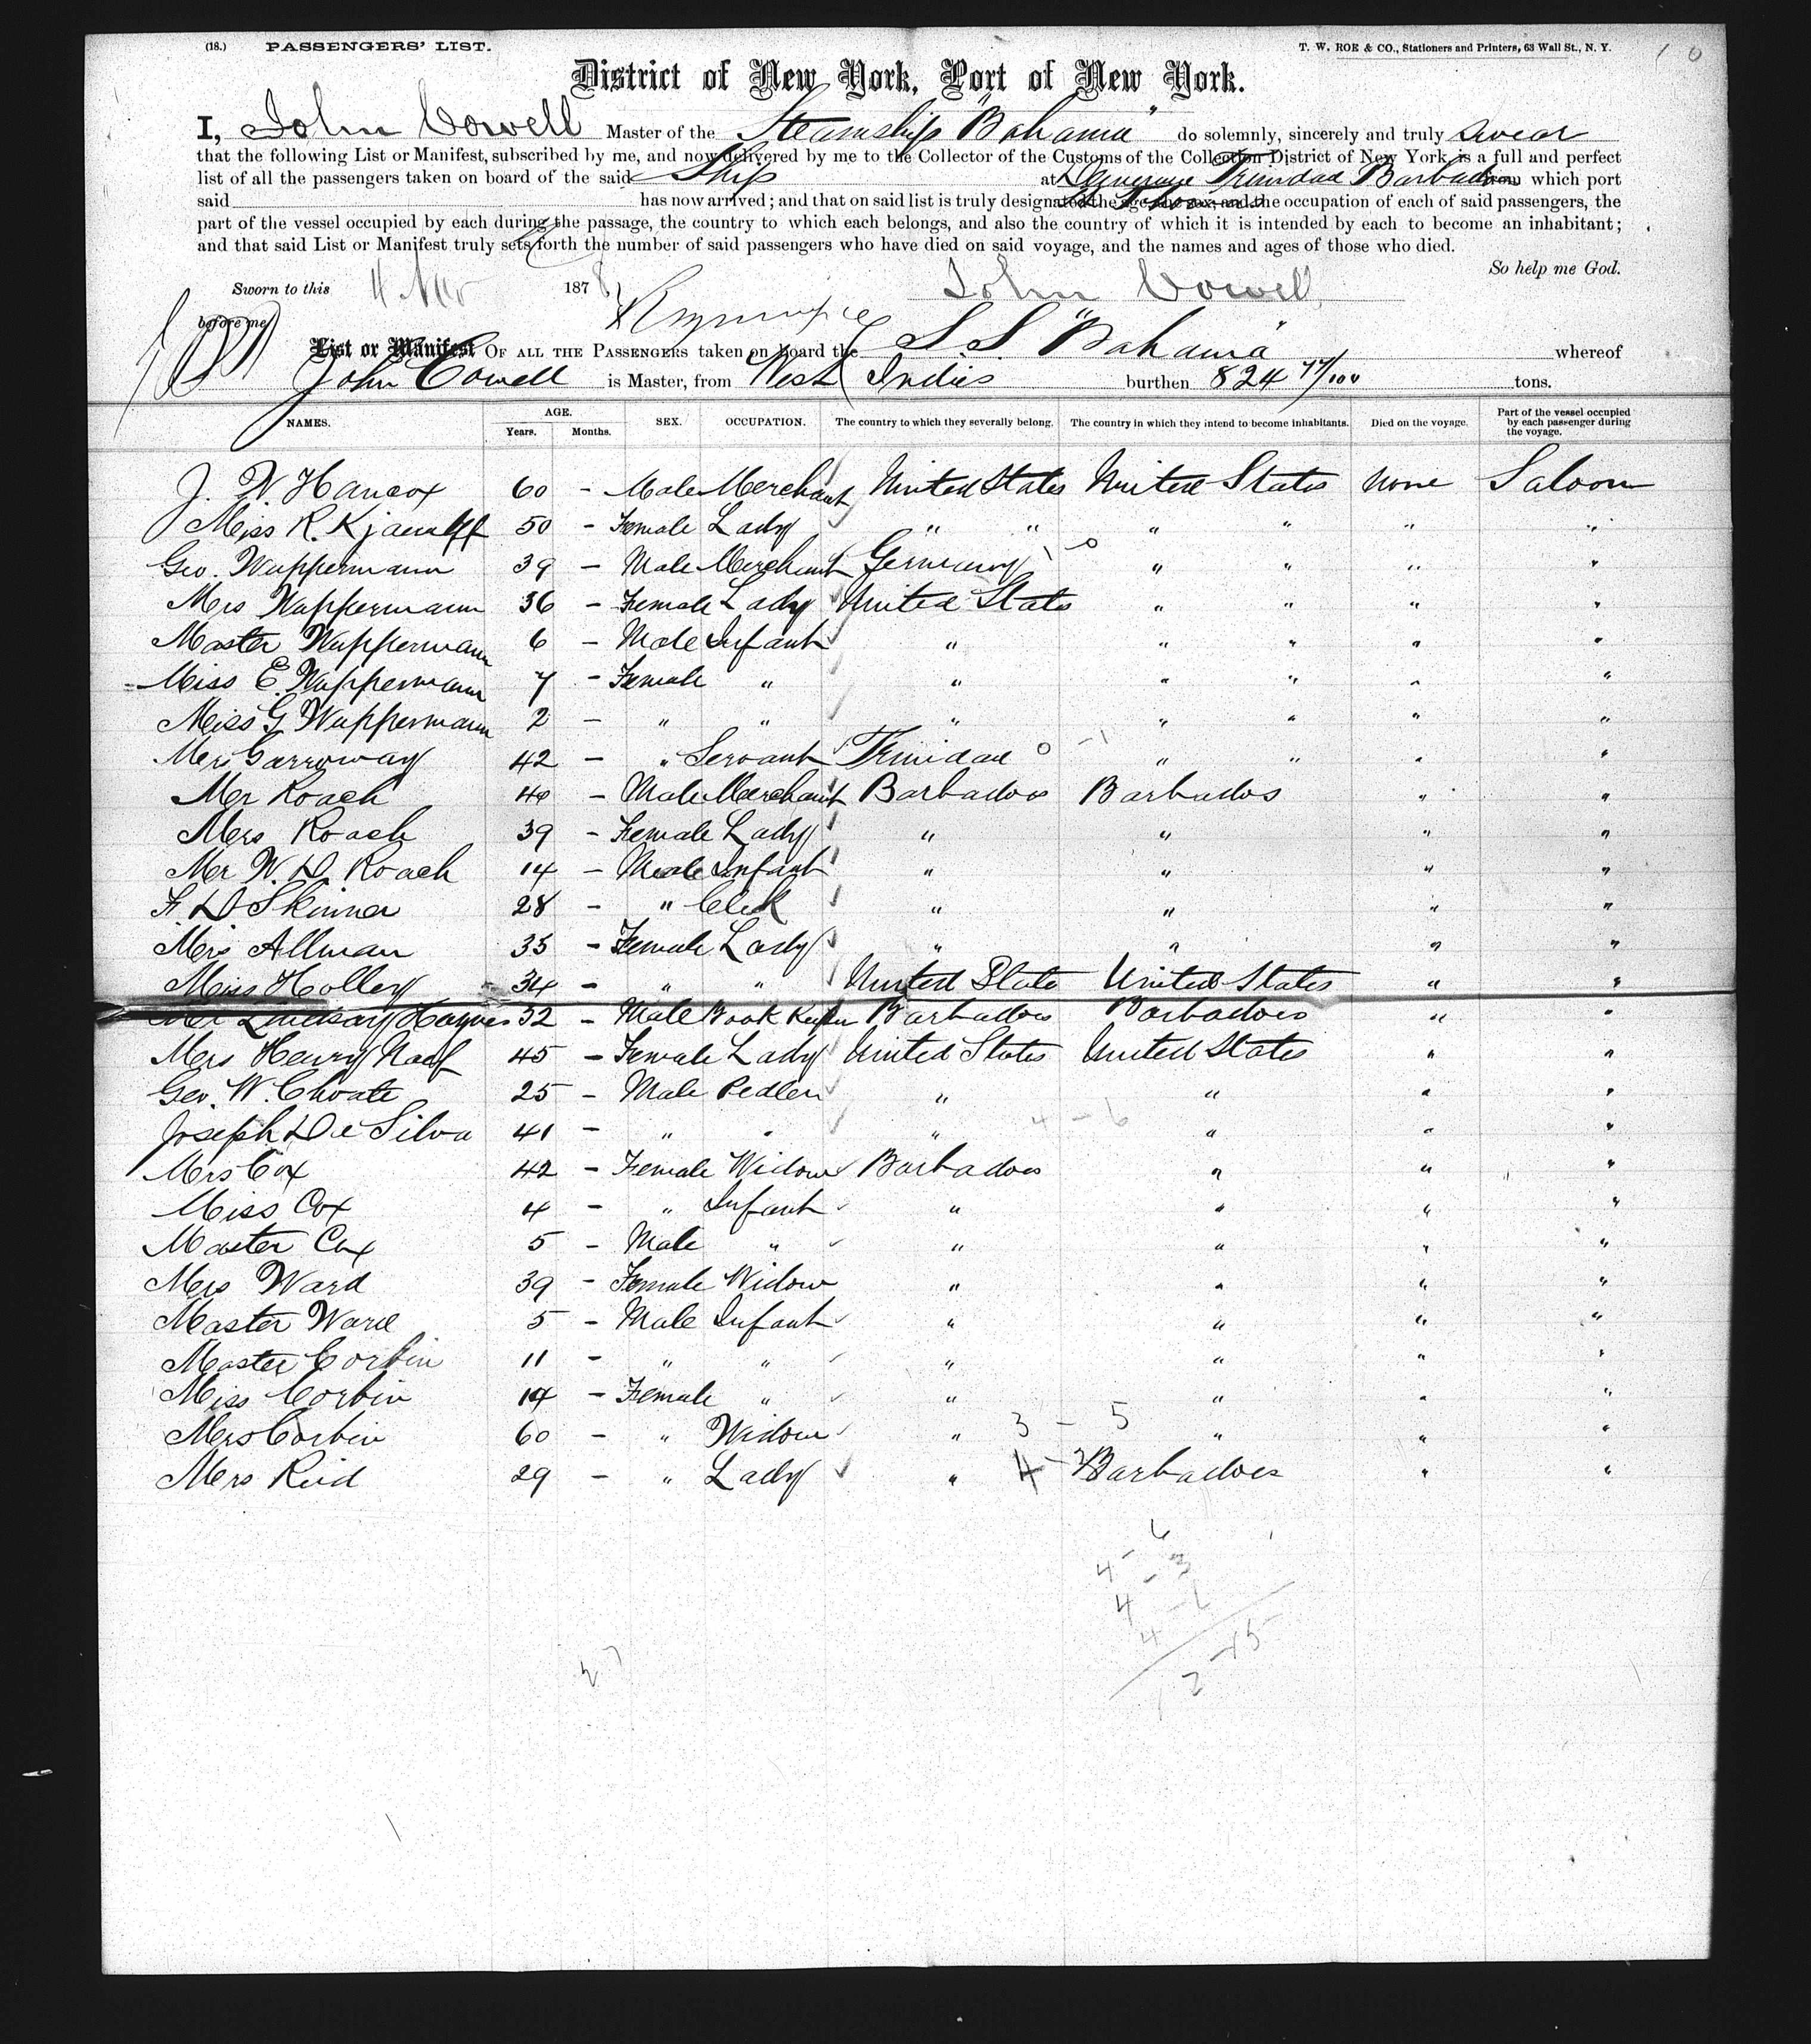 (18.) PASSENGERS' LIST. T. W. ROE & CO., Stationers and Printers, 63 Wall St., N. Y. 10
District of New York, Port of New York.
I, John Cowell Master of the Steamship "Bahama" do solemnly, sincerely and truly swear
that the following List or Manifest, subscribed by me, and now delivered by me to the Collector of the Customs of the Collection District of New York, is a full and perfect
list of all the passengers taken on board of the said Ship at Trinidad Barbados from which port
said has now arrived; and that on said list is truly designated the age, the sex, and the occupation of each of said passengers, the
part of the vessel occupied by each during the passage, the country to which each belongs, and also the country of which it is intended by each to become an inhabitant;
and that said List or Manifest truly sets forth the number of said passengers who have died on said voyage, and the names and ages of those who died.
So help me God.
Sworn to this 1878 John Cowell
before me
List or Manifest OF ALL THE PASSENGERS taken on board the S.S. "Bahama" whereof
John Cowell is Master, from West Indies burthen 824 77/100 tons.
NAMES. AGE. Years. Months. SEX. OCCUPATION. The country to which they severally belong. The country in which they intend to become inhabitants. Died on the voyage. Part of the vessel occupied by each passenger during the voyage.
J. W. Hancox 60 - Male Merchant United States United States None Saloon
Miss R. 50 - Female Lady " " " " " "
Geo. Wuppermann 39 - Male Merchant Germany 1-0 " " " "
Mrs Wuppermann 36 - Female Lady United States " " " "
Master Wuppermann 6 - Male Infant " " " " "
Miss E. Wuppermann 7 - Female " " " " " "
Miss G Wuppermann 2 - " " " " " " "
Mrs Garroway 42 - " Servant Trinidad 0-1 " " " "
Mr Roach 40 - Male Merchant Barbados Barbados " "
Mrs Roach 39 - Female Lady " " " "
Mr W. D. Roach 14 - Male Infant " " " "
F. D Skinner 28 - " Clerk " " " "
Mrs Allman 35 - Female Lady " " " "
Miss Holley 34 - " " United State United States " "
Mr Lindsay Haynes 32 - Male Book Keeper Barbados Barbadoes " "
Mrs Henry Naaf 45 - Female Lady United States United States " "
Geo. W. Choate 25 - Male Pedler " " " "
Joseph De Silva 41 - " " " 4-6 " " "
Mrs Cox 42 - Female Widow Barbadoes " " "
Miss Cox 4 - " Infant " " " "
Master Cox 5 - Male " " " " "
Mrs Ward 39 - Female Widow " " " "
Master Ward 5 - Male Infant " " " "
Master Corbin 11 - " " " " " "
Miss Corbin 14 - Female " " " " "
Mrs Corbin 60 - " Widow " 3-5 " " "
Mrs Reid 29 - " Lady " 4- Barbadoes " "
4-6
4-3
4-6
4
12-15
27